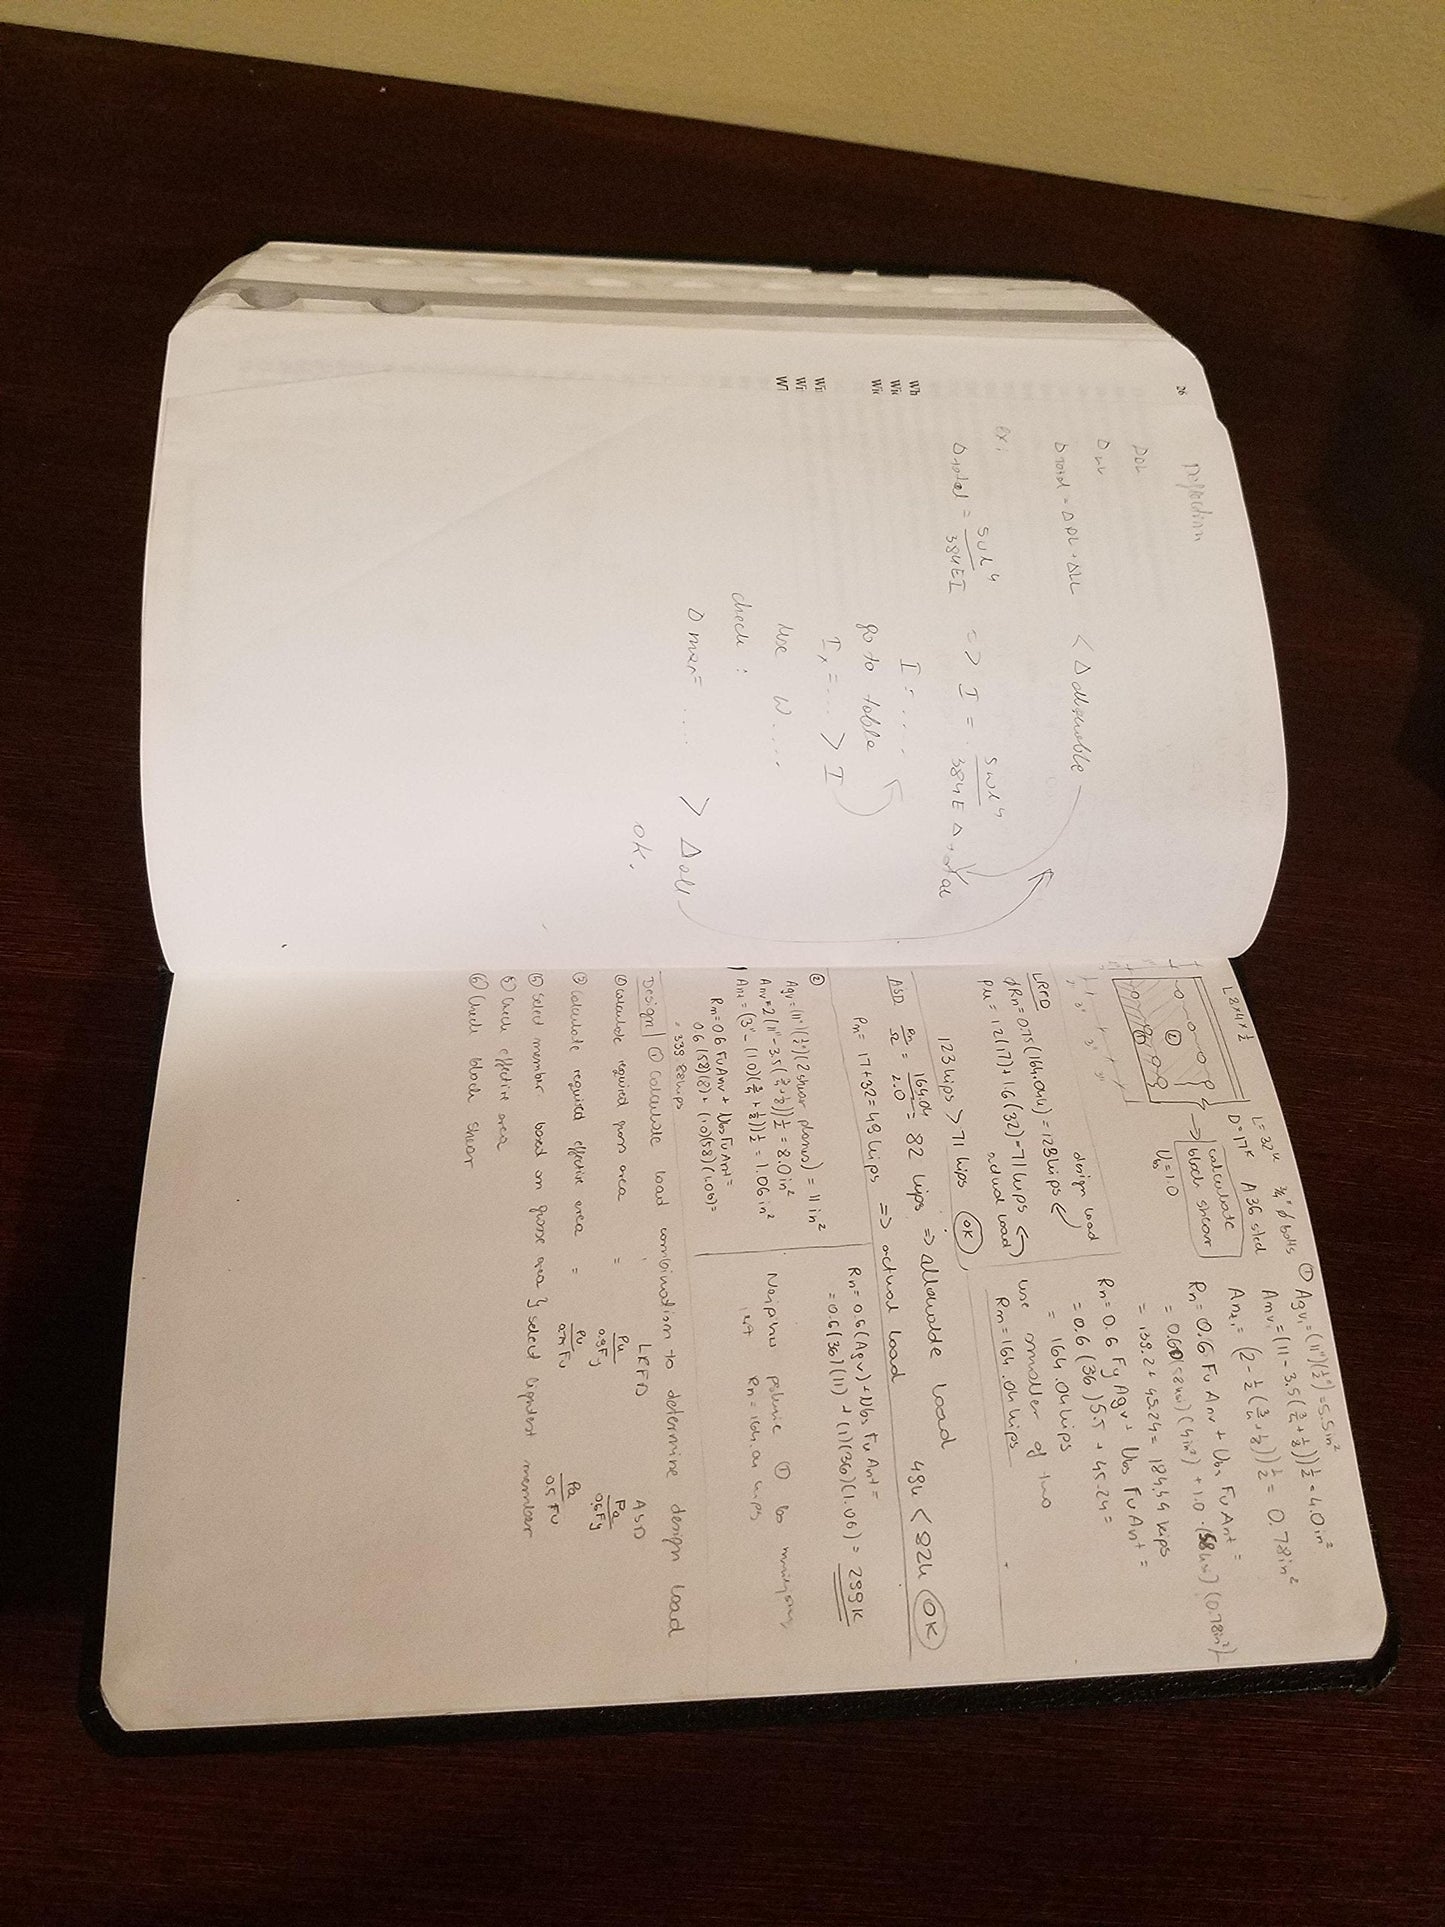 26
Deflection
ΔDL
ΔLL
ΔTotal = ΔDL + ΔLL < Δallowable
ex:
Δtotal = 5wl⁴/384EI => I = 5wl⁴/384EΔtotal
I = ....
go to table
Ix = ... > I
Use W ....
check :
Δmax = .... > Δall
OK.
Wh
Wi
Wi
W1
W1
W7
L 8x4x½
L = 32k ¾" ϕ bolts
D = 17k A36 steel
calculate
block shear
Ubs = 1.0
① Agv₁ = (11")(½") = 5.5 in²
Anv₁ = (11 - 3.5(¾ + ⅛))½ = 4.0 in²
Ant₁ = (2 - ½(¾ + ⅛))½ = 0.78 in²
Rn = 0.6 Fu Anv + Ubs Fu Ant =
= 0.6(58 ksi)(4in²) + 1.0 · (58ksi)(0.78in²)
= 139.2 + 45.24 = 184.44 kips
Rn = 0.6 Fy Agv + Ubs Fu Ant =
= 0.6 (36) 5.5 + 45.24 =
= 164.04 kips
use smaller of two
Rn = 164.04 kips
LRFD
ϕRn = 0.75(164.04) = 123 kips design load
Pu = 1.2(17) + 1.6(32) = 71 kips actual load
123 kips > 71 kips OK
ASD Rn/Ω = 164.04/2.0 = 82 kips => allowable load
Pn = 17 + 32 = 49 kips => actual load 49k < 82k OK
② Agv = (11")(½")(2 shear planes) = 11 in²
Anv = 2(11" - 3.5(¾ + ⅛))½ = 8.0 in²
Ant = (3" - (1.0)(¾ + ⅛))½ = 1.06 in²
Rn = 0.6 Fu Anv + Ubs Fu Ant =
0.6 (58)(8) + (1.0)(58)(1.06) =
= 339.88 kips
Rn = 0.6 (Agv) + Ubs Fu Ant =
= 0.6(36)(11) + (1)(36)(1.06) = 299k
① to
Rn = 164.04 kips
Design ① Calculate load combination to determine design load
LRFD ASD
② calculate required gross area = Pu/0.9Fy Pa/0.6Fy
③ calculate required effective area = Pu/0.75Fu Pa/0.5Fu
④ select member based on gross area } select lightest member
⑤ check effective area
⑥ Check block shear